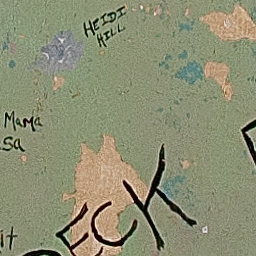 HEIDI
HILL
Mama
sa
ECK
it